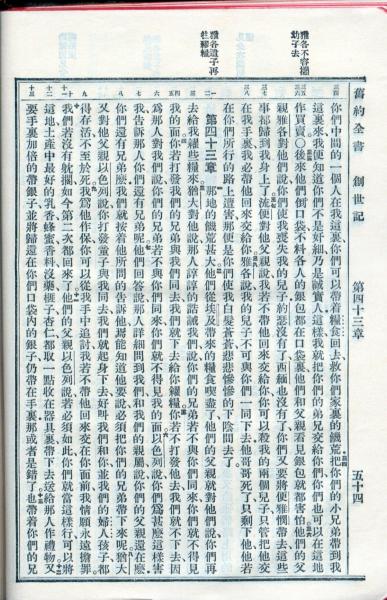 雅各不容攜
幼子去
雅各遣子再
往糴糧
舊約全書 創世記 第四十三章 五十四
你們中間的一個人在我這裏你們可以帶着糧食回去救你們家裏的饑荒把你們的小兄弟帶到我
這裏來我便知道你們不是奸細乃是誠實人這樣我就把你們的弟兄交給你們你們也可以在這地
作買賣○後來他們倒口袋不料各人的銀包都在口袋裏他們和父親看見銀包就都害怕他們的父
親雅各對他們說你們使我喪失我的兒子約瑟沒有了西緬也沒有了你們又要將便雅憫帶去這些
事都歸到我身上了流便對他父親說我若不帶他回來交給你你可以殺我的兩個兒子只管把他交
在我手裏我必帶他回來交給你雅各說我的兒子不可與你們一同下去他哥哥死了只剩下他他若
在你們所行的路上遭害那便是你們使我白髮蒼蒼悲悲慘慘的下陰間去了
第四十三章 那地的饑荒甚大他們從埃及帶來的糧食喫盡了他們的父親就對他們說你們再
去給我糴些糧來猶大對他說那人諄諄的誥誡我們說你們的兄弟若不與你們同來你們就不得見
我的面你若打發我們的兄弟與我們同去我們就下去給你糴糧你若不打發他去我們就不下去因
爲那人對我們說你們的兄弟若不與你們同來你們就不得見我的面以色列說你們爲甚麼這樣害
我告訴那人你們還有兄弟呢他們回答說那人詳細問到我們和我們的親屬說你們的父親還在麼
你們還有兄弟麼我們就按着他所問的告訴他焉能知道他要說必須把你們的兄弟帶下來呢猶大
又對他父親以色列說你打發童子與我同去我們就起身下去好叫我們和你並我們的婦人孩子都
得存活不至於死我爲他作保你可以從我手中追討我若不帶他回來交在你面前我情願永遠擔罪
我們若沒有躭擱如今第二次都回來了他們的父親以色列說若必須如此你們就當這樣行可以將
這地土產中最好的乳香蜂蜜香料沒藥榧子杏仁都取一點收在器具裏帶下去送給那人作禮物又
要手裏加倍的帶銀子並將歸還在你們口袋內的銀子仍帶在手裏那或者是錯了也帶着你們的兄